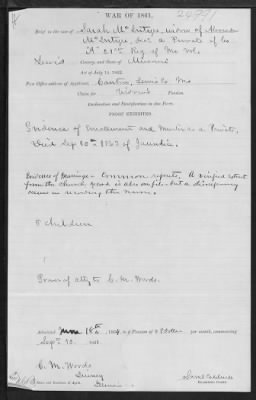 WAR OF 1861.
Brief in the case of Sarah McIntyre, widow of
McIntyre, dec'd a Private of Co.
"A" 21st Reg of Mo Vol.
Lewis County, and State of Missouri
Act of July 14, 1862.
Post Office address of Applicant: Canton, Lewis Co. Mo
Claim for Widow's Pension.
Declaration and Identification in due Form.
PROOF EXHIBITED
Evidence of Enrolment and Muster as a Private.
Died Sep 10th 1862 of Jaundice.
Evidence of Marriage - Common repute. A verified extract
from the church record is also on file - but a discrepancy
in the name.
5 children
Power of atty to C. M. Woods.
Admitted June 18th, 1864 to a Pension of 8 Dollars per month, commencing
Sept 10, 186
C. M. Woods
Quincy
Illinois